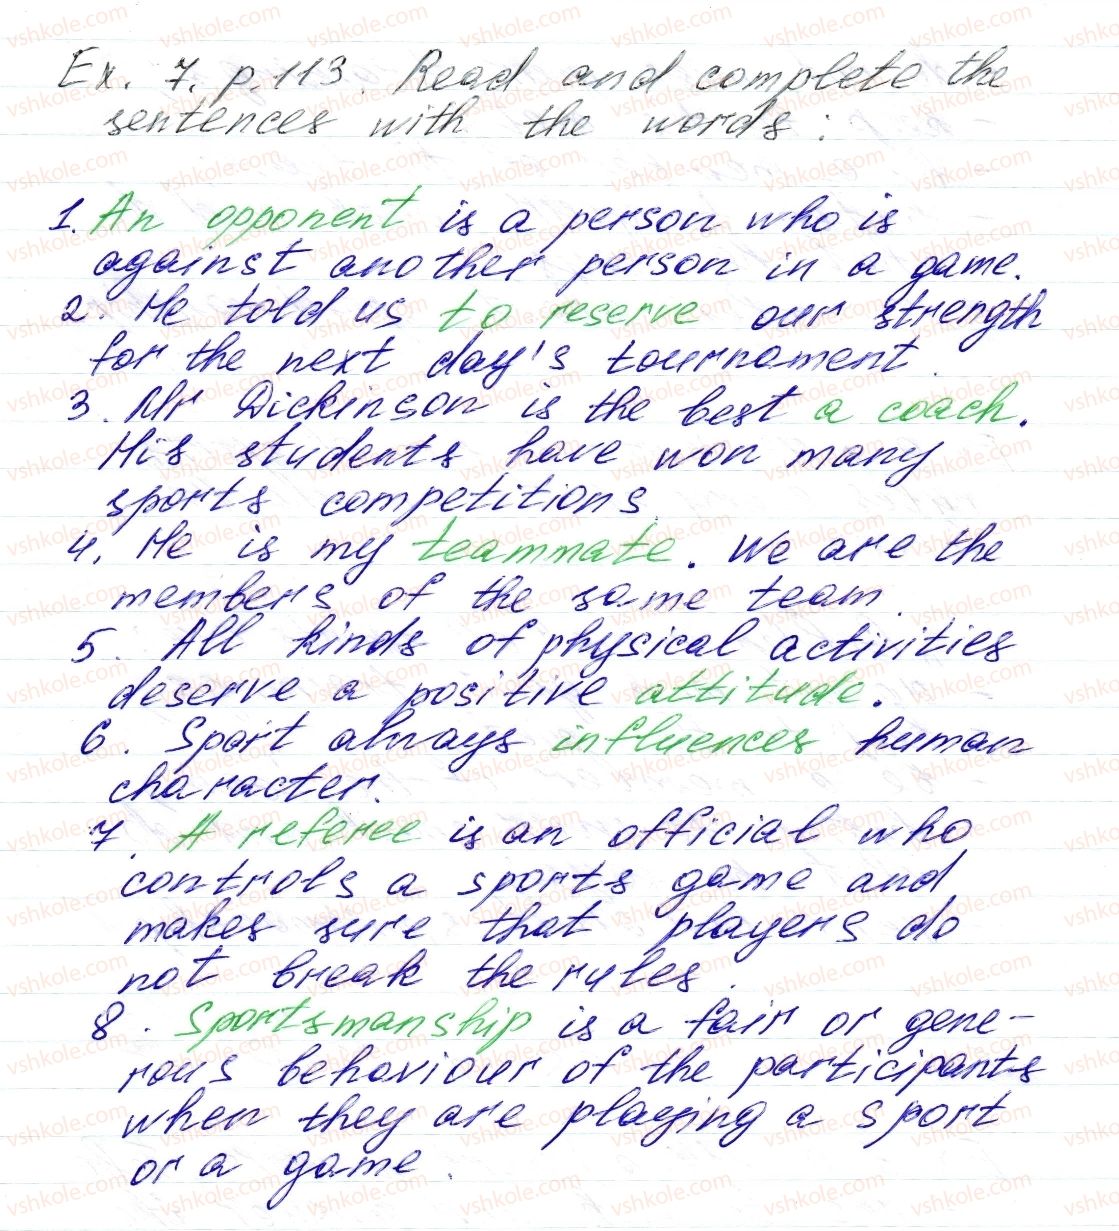 Ex. 7. p. 113. Read and complete the
sentences with the words:
1. An opponent is a person who is
against another person in a game.
2. He told us to reserve our strength
for the next day's tournament.
3. Mr Dickinson is the best a coach.
His students have won many
sports competitions.
4. He is my teammate. We are the
members of the same team.
5. All kinds of physical activities
deserve a positive attitude.
6. Sport always influences human
character.
7. A referee is an official who
controls a sports game and
makes sure that players do
not break the rules.
8. Sportsmanship is a fair or gene-
rous behaviour of the participants
when they are playing a sport
or a game.